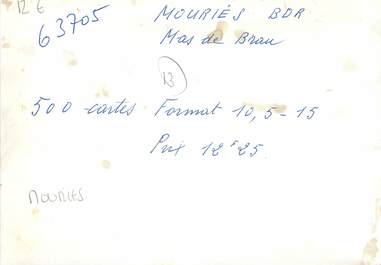 12 €
63705
MOURIÈS BDR
Mas de Brau
13
500 cartes Format 10,5-15
Prix 12F25
MOURIES